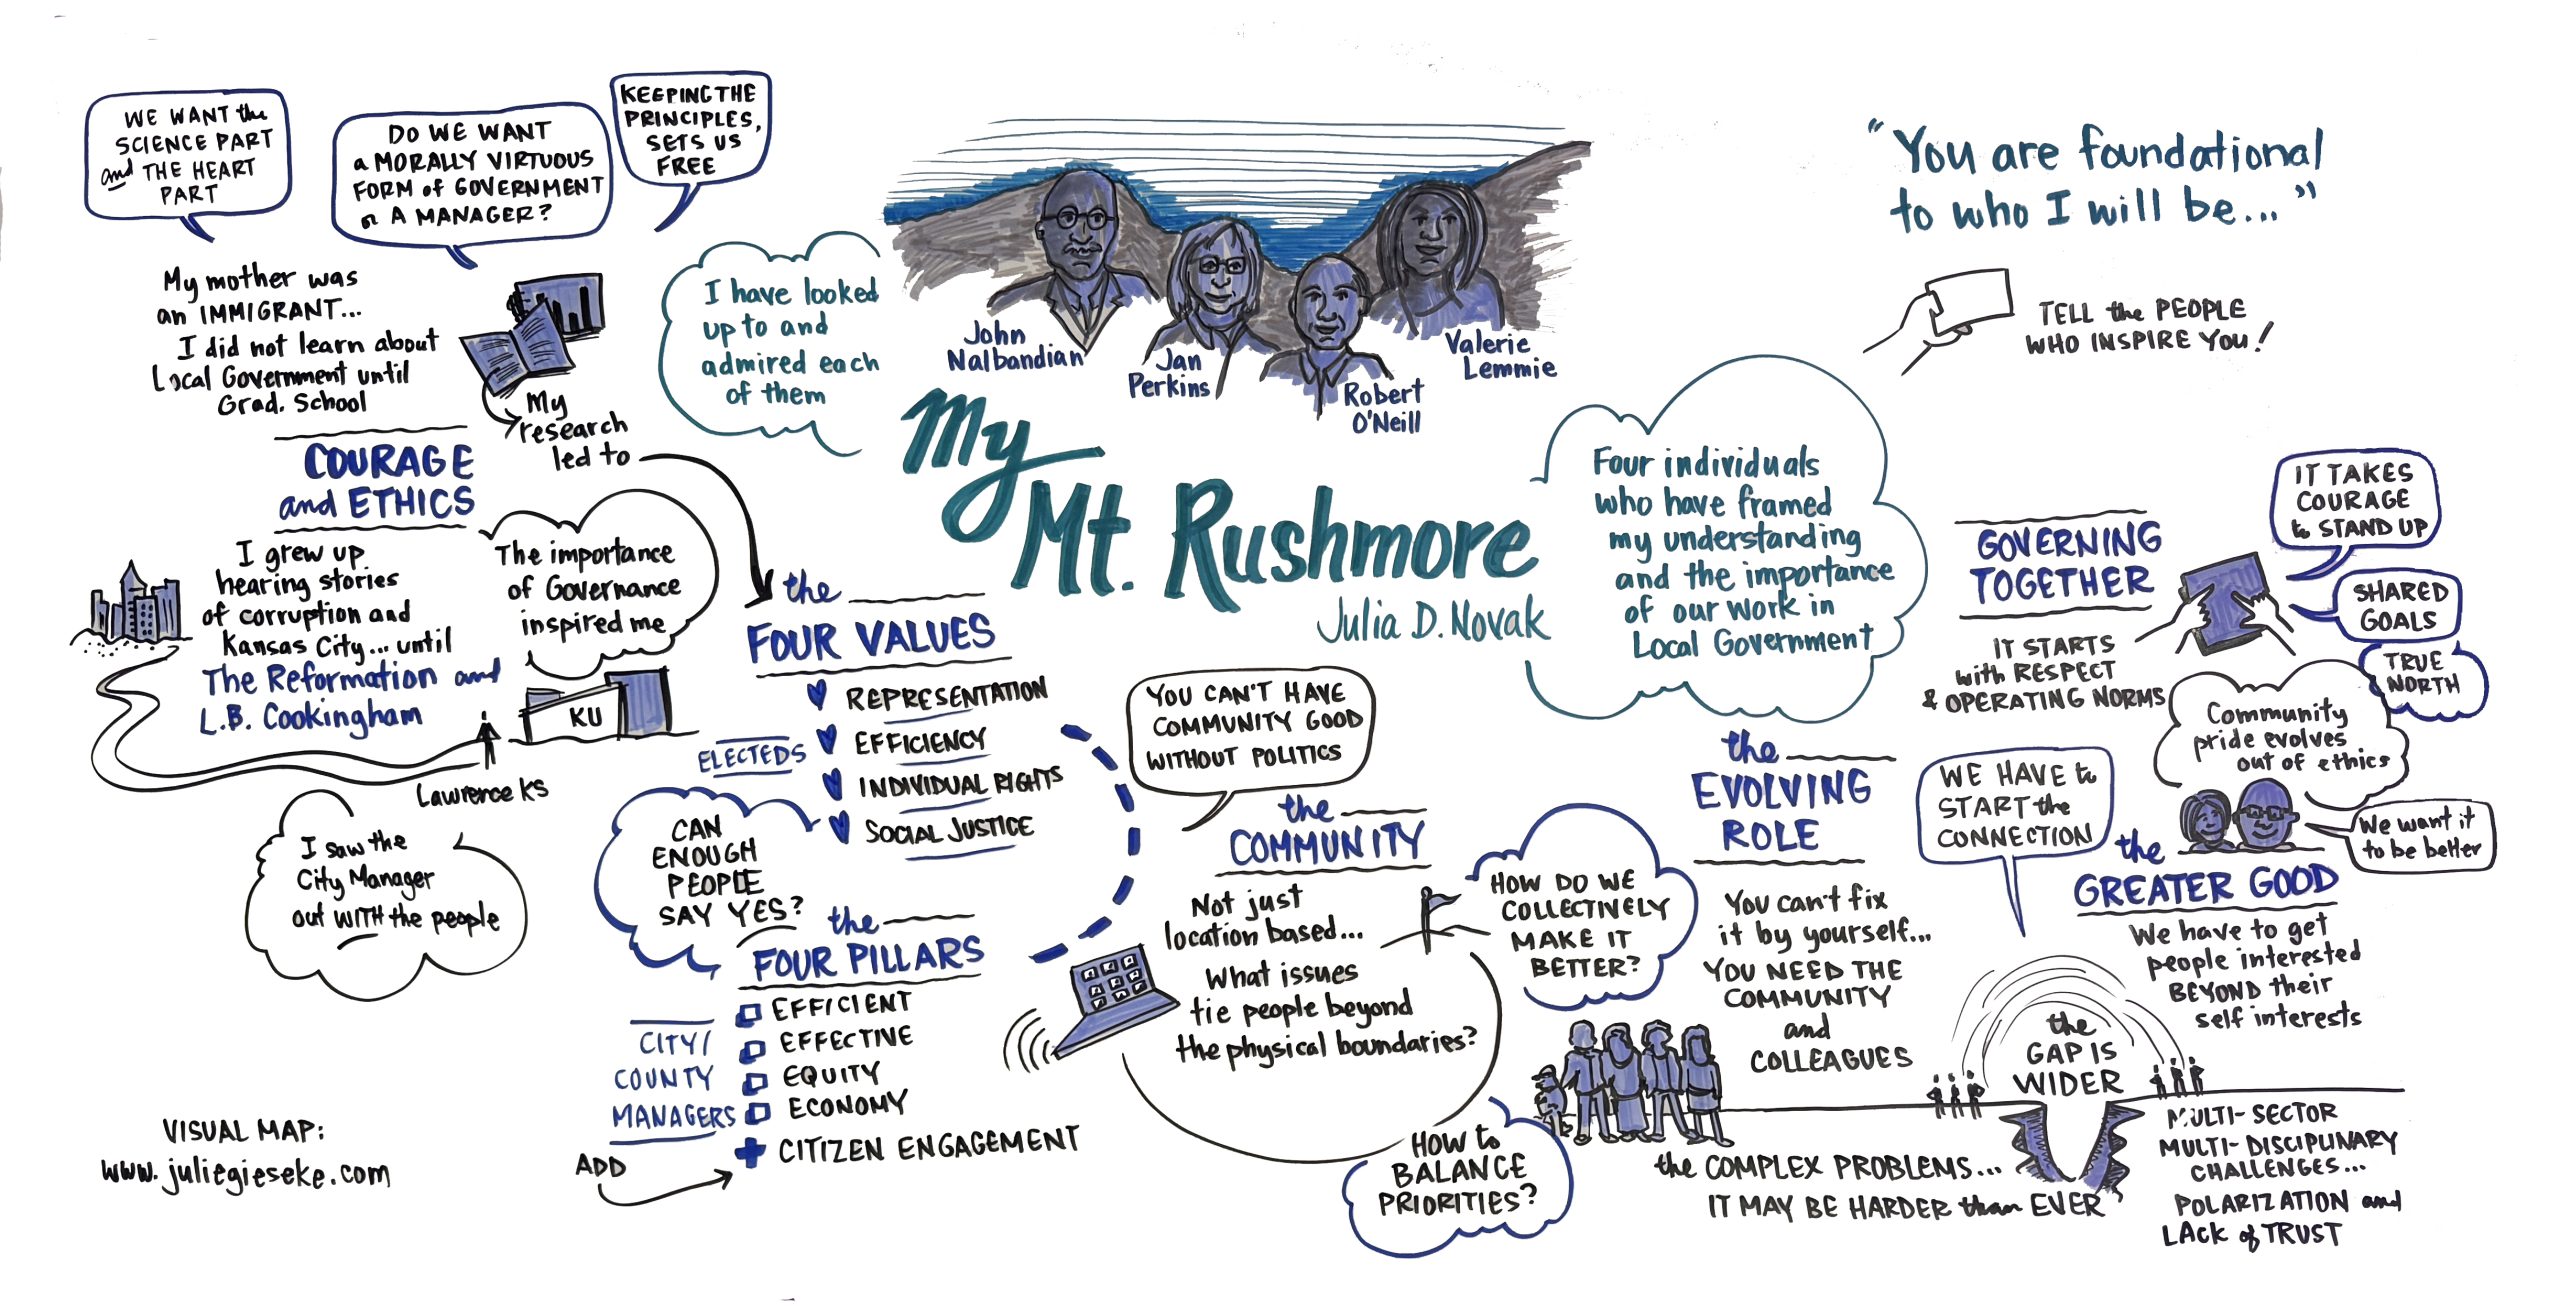 WE WANT the
SCIENCE PART
and THE HEART
PART
DO WE WANT
a MORALLY VIRTUOUS
FORM of GOVERNMENT
or A MANAGER?
KEEPING THE
PRINCIPLES,
SETS US
FREE
My mother was
an IMMIGRANT...
I did not learn about
Local Government until
Grad. School
My
research
led to
COURAGE
and ETHICS
I grew up
hearing stories
of corruption and
Kansas City... until
The Reformation and
L.B. Cookingham
The importance
of Governance
inspired me
KU
Lawrence KS
I saw the
City Manager
out WITH the people
VISUAL MAP:
www.juliegieseke.com
I have looked
up to and
admired each
of them
John
Nalbandian
Jan
Perkins
Robert
O'Neill
Valerie
Lemmie
My
Mt. Rushmore
Julia D. Novak
the
FOUR VALUES
REPRESENTATION
EFFICIENCY
INDIVIDUAL RIGHTS
SOCIAL JUSTICE
ELECTEDS
CAN
ENOUGH
PEOPLE
SAY YES?
the
FOUR PILLARS
EFFICIENT
EFFECTIVE
EQUITY
ECONOMY
CITIZEN ENGAGEMENT
CITY/
COUNTY
MANAGERS
ADD
YOU CAN'T HAVE
COMMUNITY GOOD
WITHOUT POLITICS
the
COMMUNITY
Not just
location based...
What issues
tie people beyond
the physical boundaries?
HOW DO WE
COLLECTIVELY
MAKE IT
BETTER?
HOW to
BALANCE
PRIORITIES?
Four individuals
who have framed
my understanding
and the importance
of our work in
Local Government
"You are foundational
to who I will be..."
TELL the PEOPLE
WHO INSPIRE YOU!
the
EVOLVING
ROLE
You can't fix
it by yourself...
YOU NEED THE
COMMUNITY
and
COLLEAGUES
the COMPLEX PROBLEMS...
IT MAY BE HARDER than EVER
GOVERNING
TOGETHER
IT STARTS
with RESPECT
& OPERATING NORMS
IT TAKES
COURAGE
to STAND UP
SHARED
GOALS
TRUE
NORTH
Community
pride evolves
out of ethics
We want it
to be better
WE HAVE to
START the
CONNECTION
the
GREATER GOOD
We have to get
people interested
BEYOND their
self interests
the
GAP IS
WIDER
MULTI-SECTOR
MULTI-DISCIPLINARY
CHALLENGES...
POLARIZATION and
LACK of TRUST